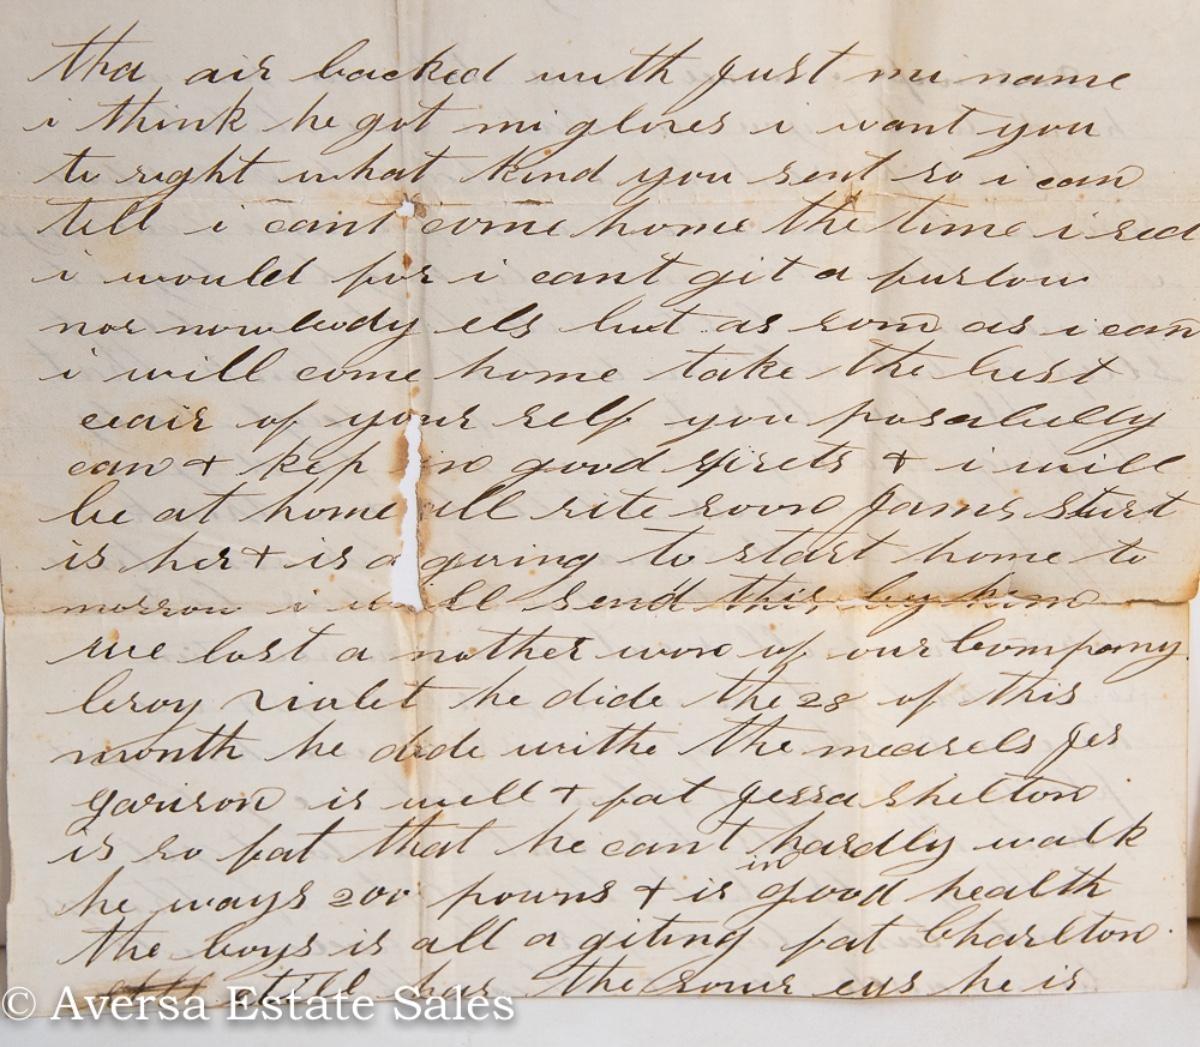 tha air backed with just mi name
i think he got mi gloves i want you
to right what kind you sent so i can
tell i cant come home the time i sed
i would for i cant git a furlow
nor nowbody els but as soon as i can
i will come home take the best
ceair of your self you posabully
can + kep in good spirets + i will
be at home all rite soon James sturt
is her + is a goring to start home to
morrow i will send this by him
we lost a nother won of our Company
leroy violet he dide the 28 of this
month he dide withe the mearels Jes
garison is well + fat Jessa shelton
is so fat that he cant hardly walk
he ways 200 powns + is in good health
the boys is all a giting fat Charlton
still has the sour eys he is
© Aversa Estate Sales